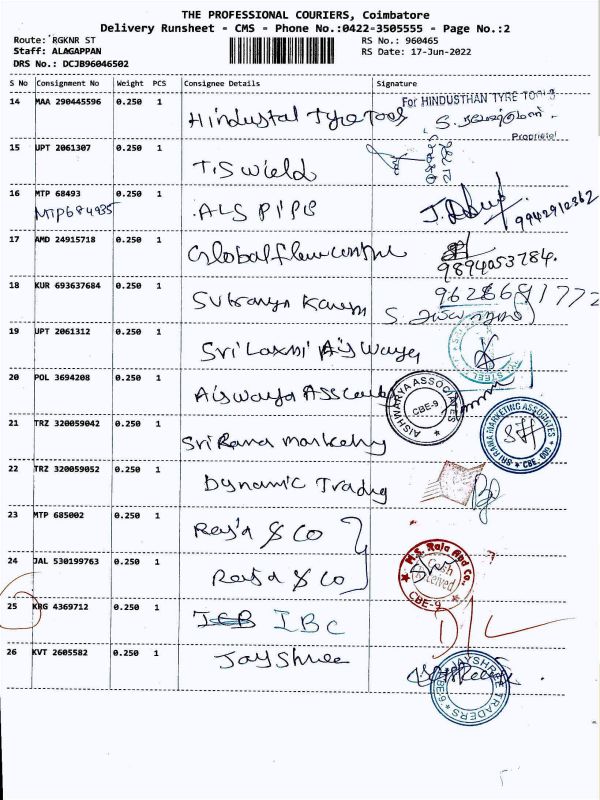 THE PROFESSIONAL COURIERS, Coimbatore
Delivery Runsheet - CMS - Phone No.:0422-3505555 - Page No.:2
Route: RGKNR ST
RS No.: 960465
Staff: ALAGAPPAN
RS Date: 17-Jun-2022
DRS No.: DCJB96046502
S No Consignment No Weight PCS Consignee Details Signature
14 MAA 290445596 0.250 1 Hindustal Tyre Tools For HINDUSTHAN TYRE TOOLS
Proprietor
15 UPT 2061307 0.250 1 T.S wield
16 MTP 68493 0.250 1 ALS PIPE
MTP684935 9942910362
17 AMD 24915718 0.250 1 Global flow control
9894053784.
18 KUR 693637684 0.250 1 9628681772
19 UPT 2061312 0.250 1 Sri Laxmi Aiswarya
STEEL
20 POL 3694208 0.250 1 Aiswarya AISHWARYA ASSOCIATES CBE-9
21 TRZ 320059042 0.250 1 Sri Rama Markeling SRI RAMA MARKETING ASSOCIATES CBE
22 TRZ 320059052 0.250 1 Dynamic Trading
23 MTP 685002 0.250 1 Raja & Co
24 JAL 530199763 0.250 1 Raja & Co M.S. Raja And Co. Cash Received CBE-9
25 KRG 4369712 0.250 1 IBC
26 KVT 2605582 0.250 1 Jayshree JAYSHREE TRADERS